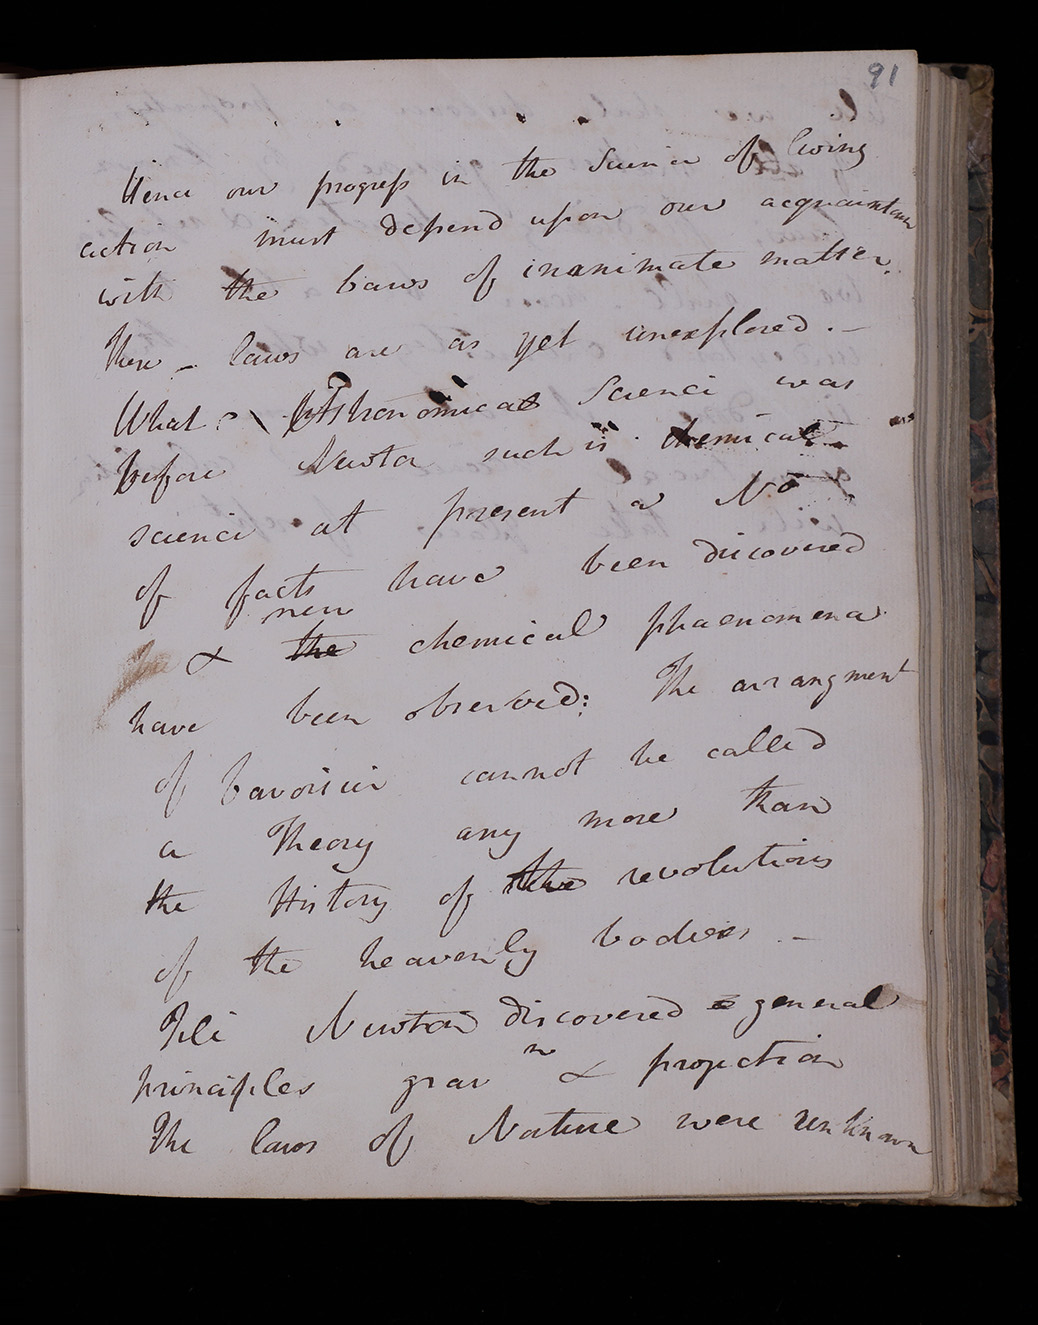 91
Hence our progress in the Science of living
action must depend upon our acquaintance
with the laws of inanimate matter.
These laws are as yet unexplored. –
What Astronomical Science was
before Newton such is chemical
science at present a No
of facts have been discovered
& the new chemical phaenomena
have been observed: The arrangment
of Lavoisier cannot be called
a Theory any more than
the History of the revolutions
of the heavenly bodies –
Till Newton discovered general
principles gravn & projection
The laws of Nature were unknown